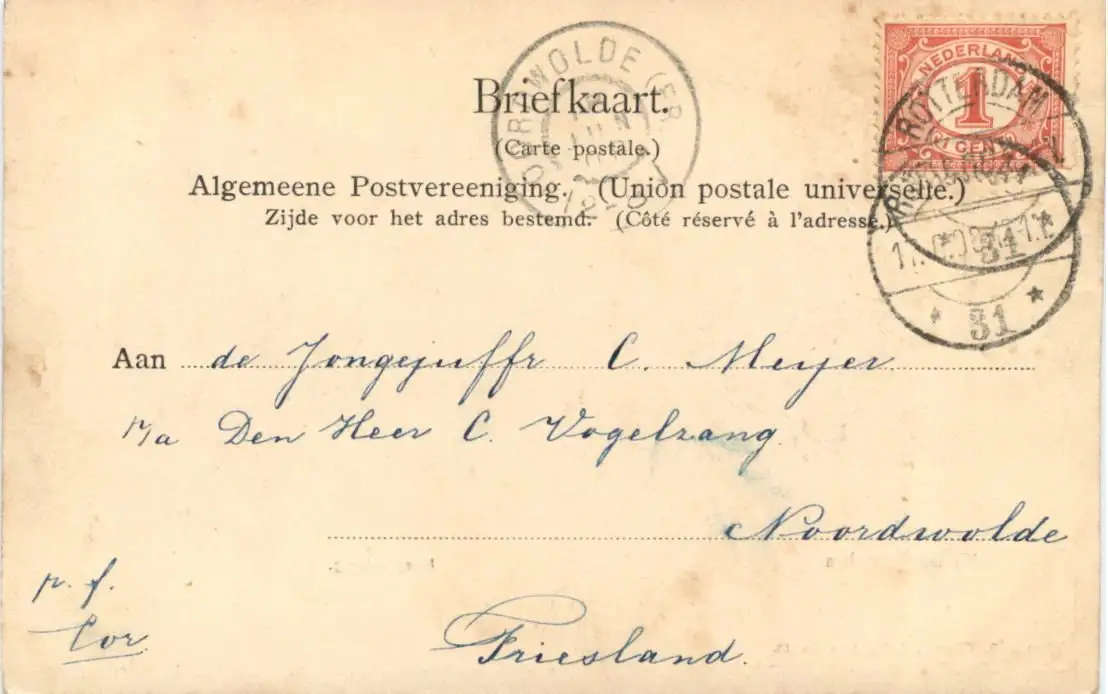 NEDERLAND
1
(1 CENT)
ROTTERDAM
31
31
Briefkaart.
(Carte postale.)
Algemeene Postvereeniging. (Union postale universelle.)
Zijde voor het adres bestemd. (Côté réservé à l'adresse.)
Aan de Jongejuffr C. Meijer
p/a Den Heer C. Vogelzang
Noordwolde
p. f.
Cor.
Friesland.